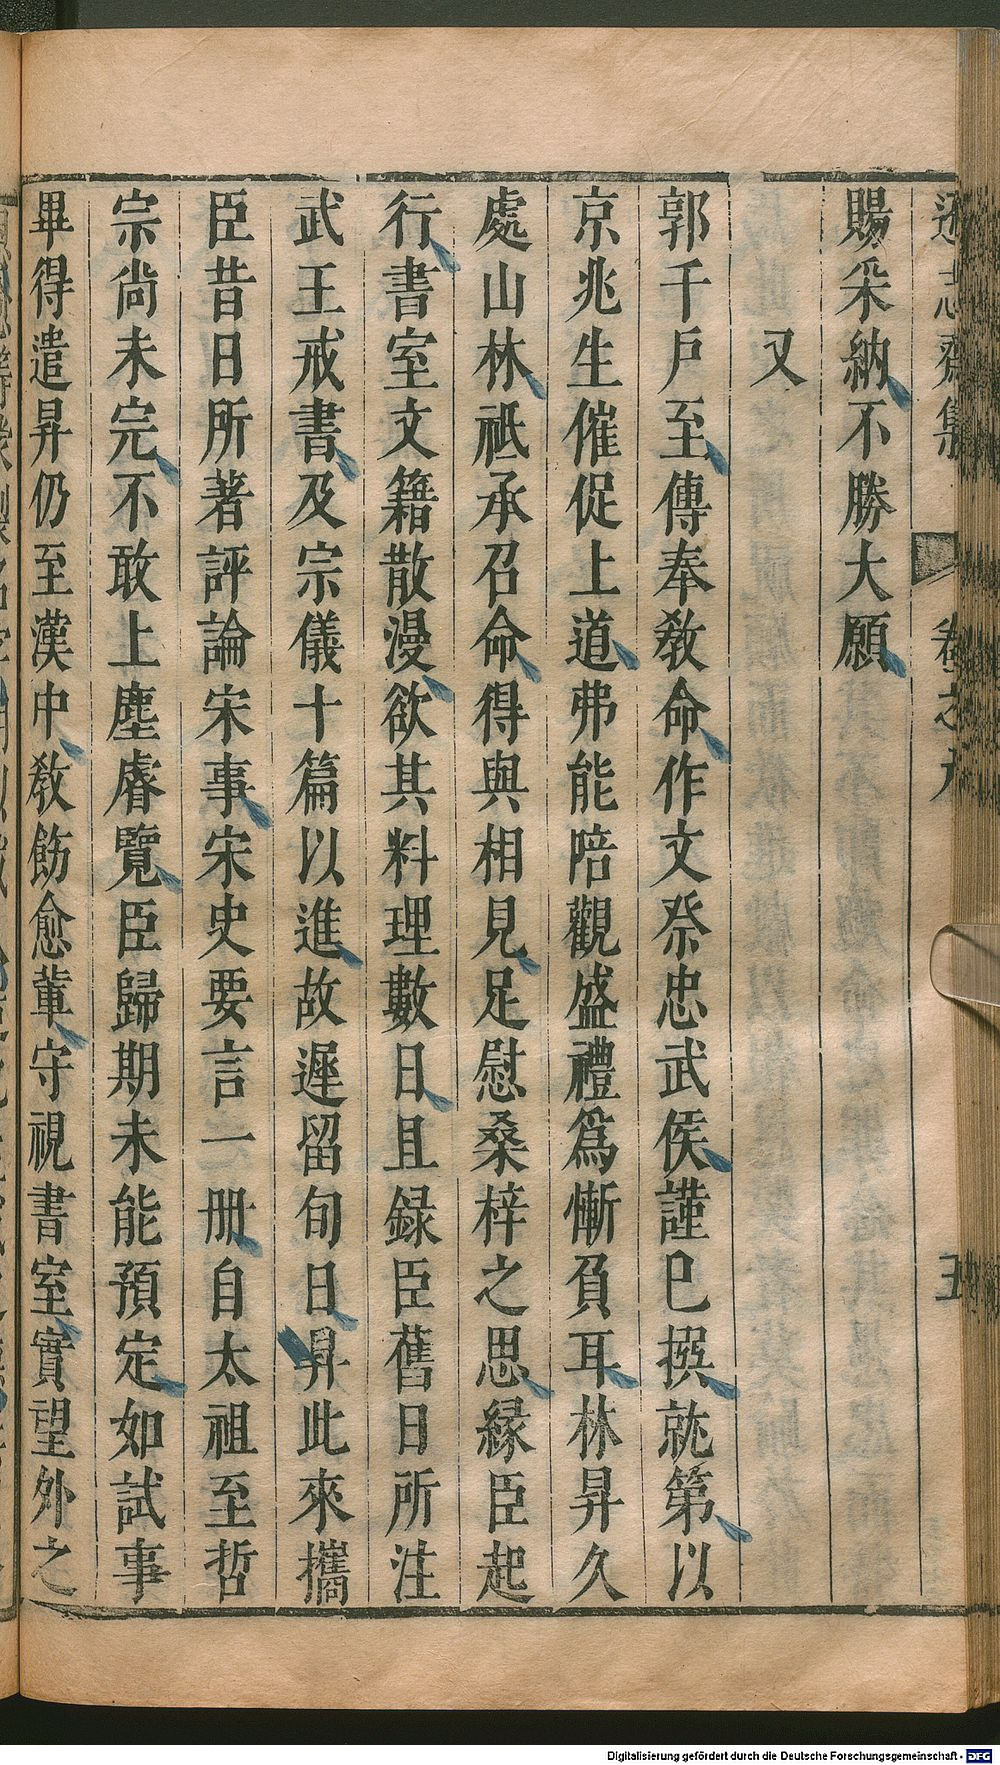 遜志齋集 卷之九 五
賜采納不勝大願
又
郭千戶至傳奉敎命作文祭忠武侯謹已撰就第以
京兆生催促上道弗能陪觀盛禮爲慚負耳林昇久
處山林祗承召命得與相見足慰桑梓之思緣臣起
行書室文籍散漫欲其料理數日且録臣舊日所注
武王戒書及宗儀十篇以進故遲留旬日昇此來攜
臣昔日所著評論宋事宋史要言一册自太祖至哲
宗尚未完不敢上塵睿覽臣歸期未能預定如試事
畢得遣昇仍至漢中敎飭愈輩守視書室實望外之
Digitalisierung gefördert durch die Deutsche Forschungsgemeinschaft - DFG